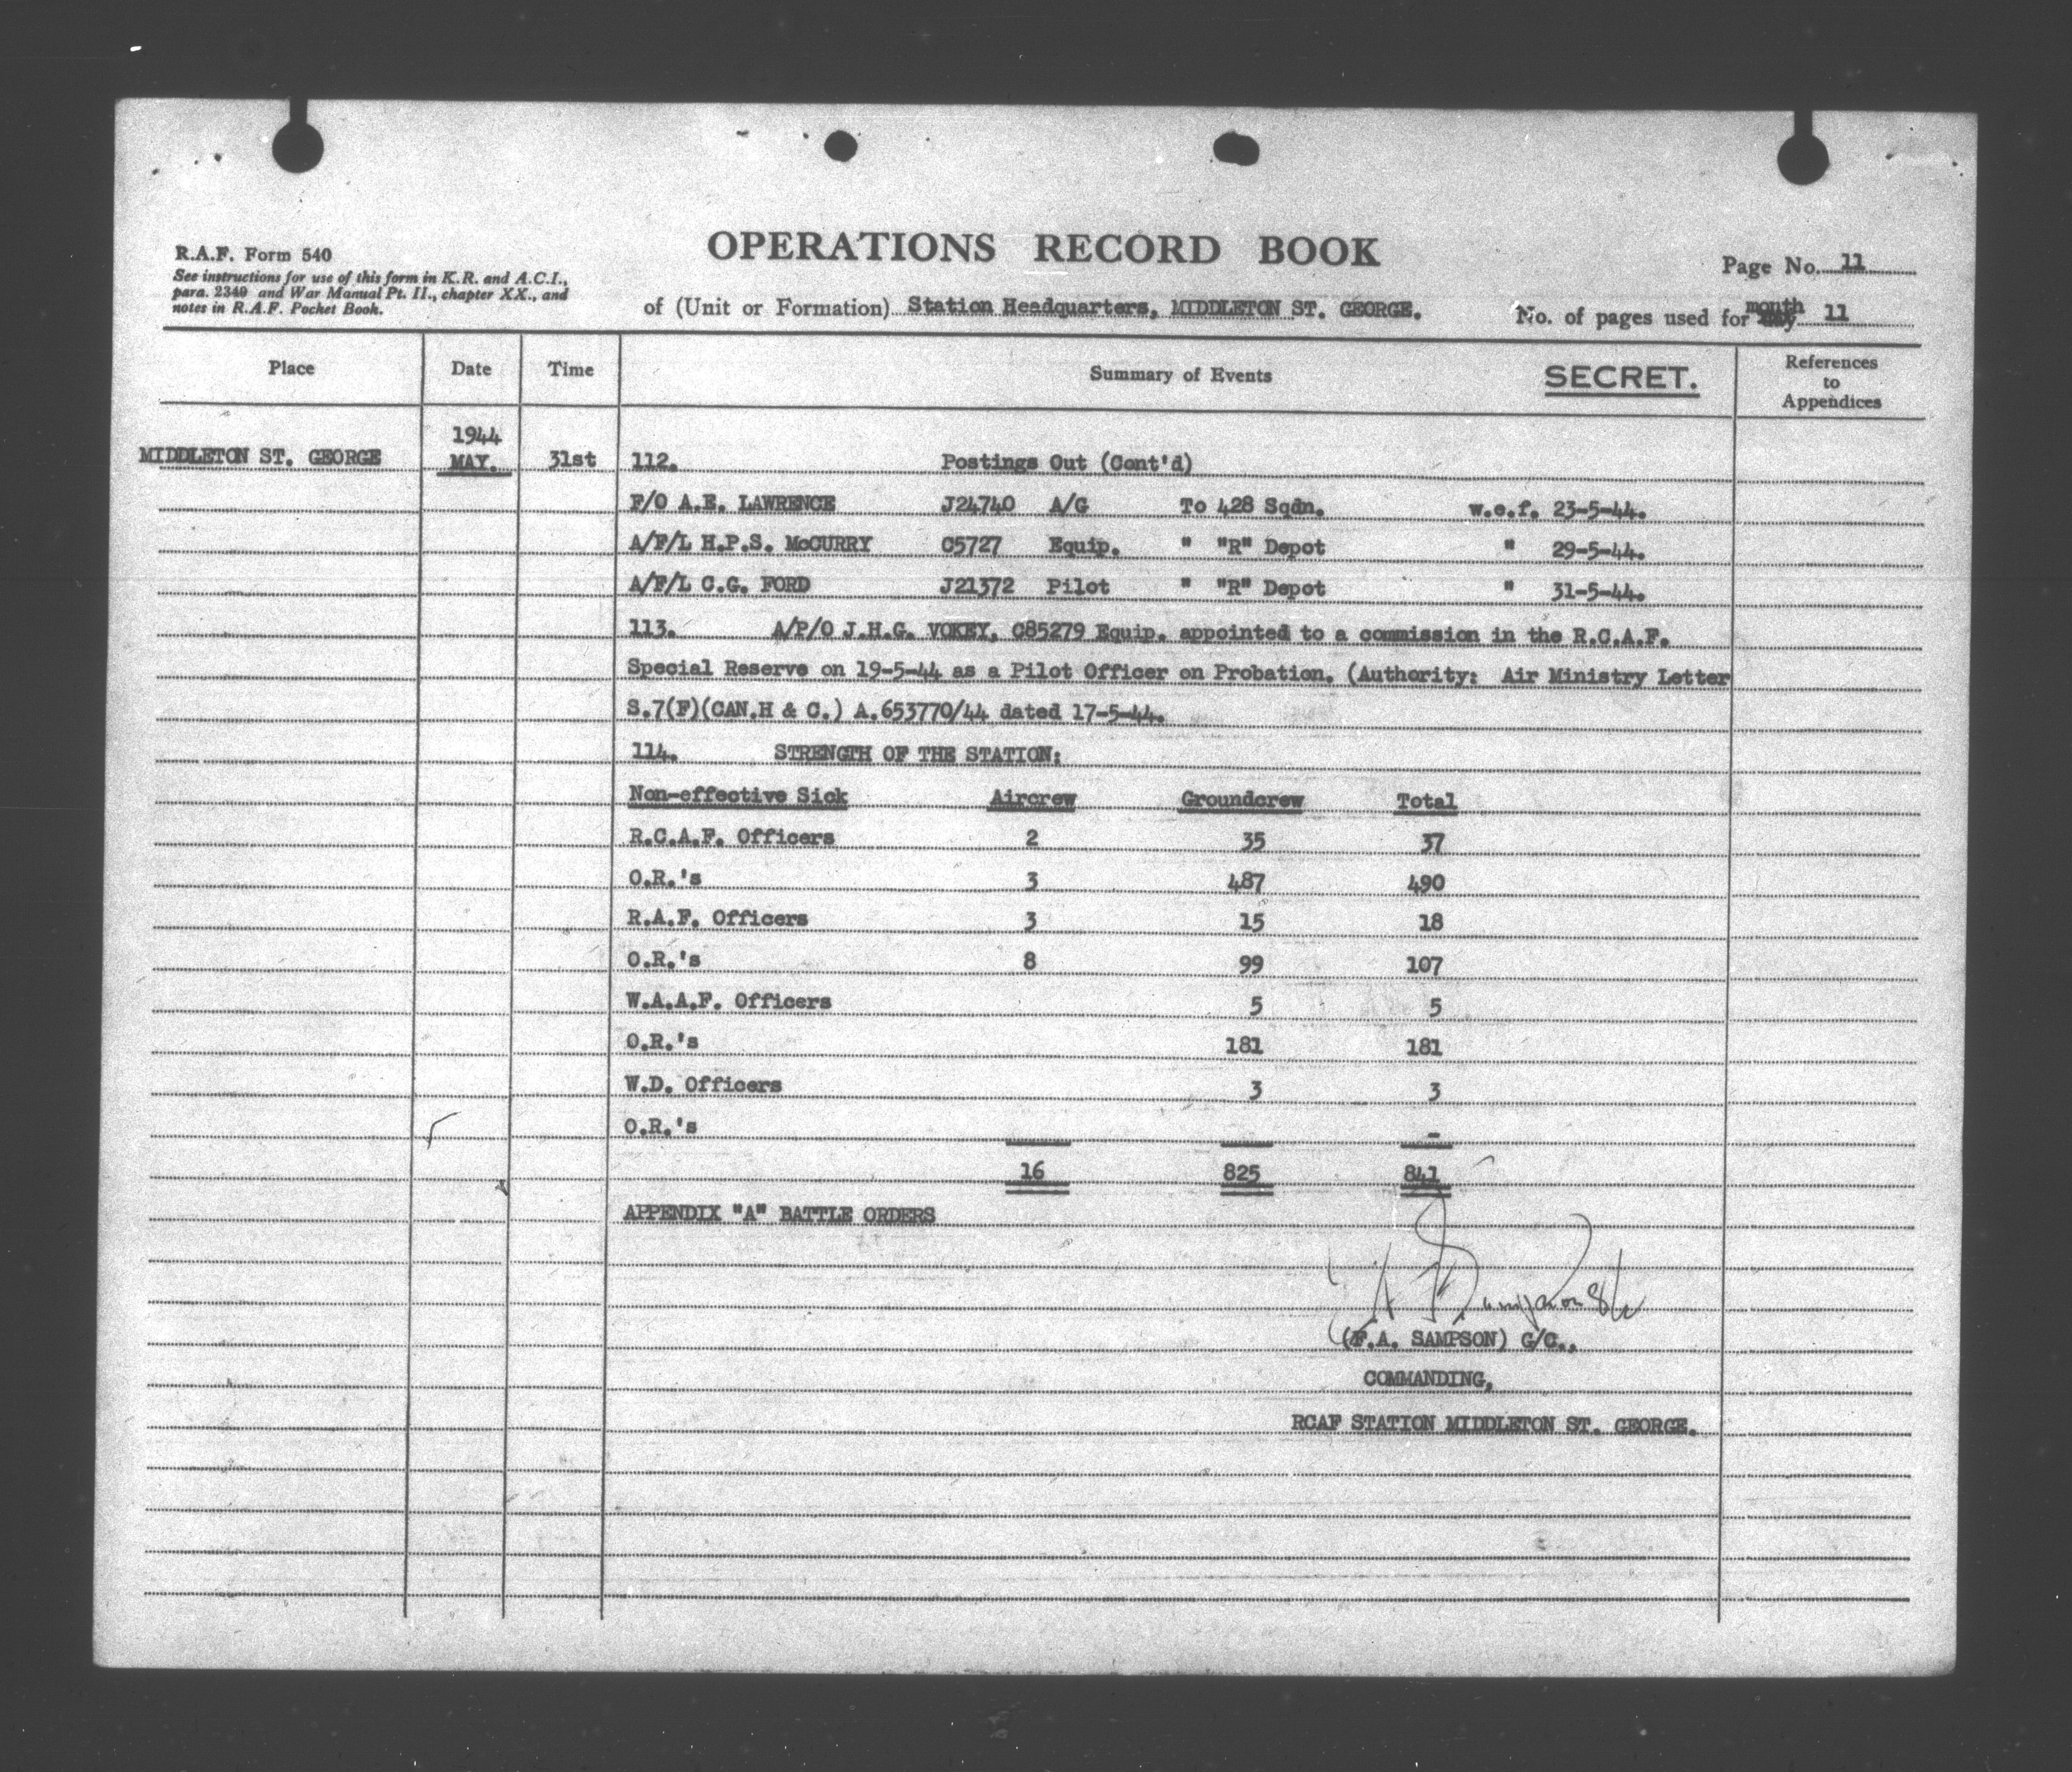 OPERATIONS RECORD BOOK
R.A.F. Form 540
See instructions for use of this form in K.R. and A.C.I.,
para. 2349 and War Manual Pt. II., chapter XX., and
notes in R.A.F. Pocket Book.
Page No. 11
of (Unit or Formation) Station Headquarters, MIDDLETON ST. GEORGE.
No. of pages used for month 11
Place Date Time Summary of Events SECRET. References to Appendices
1944
MIDDLETON ST. GEORGE MAY. 31st 112. Postings Out (Cont'd)
F/O A.E. LAWRENCE J24740 A/G To 428 Sqdn. w.e.f. 23-5-44.
A/F/L H.P.S. McCURRY C5727 Equip. " "R" Depot " 29-5-44.
A/F/L C.G. FORD J21372 Pilot " "R" Depot " 31-5-44.
113. A/P/O J.H.G. VOKEY, C85279 Equip. appointed to a commission in the R.C.A.F.
Special Reserve on 19-5-44 as a Pilot Officer on Probation. (Authority: Air Ministry Letter
S.7(F)(CAN.H & C.) A.653770/44 dated 17-5-44.
114. STRENGTH OF THE STATION:
Non-effective Sick Aircrew Groundcrew Total
R.C.A.F. Officers 2 35 37
O.R.'s 3 487 490
R.A.F. Officers 3 15 18
O.R.'s 8 99 107
W.A.A.F. Officers 5 5
O.R.'s 181 181
W.D. Officers 3 3
O.R.'s -
16 825 841
APPENDIX "A" BATTLE ORDERS
(F.A. SAMPSON) G/C.,
COMMANDING,
RCAF STATION MIDDLETON ST. GEORGE.